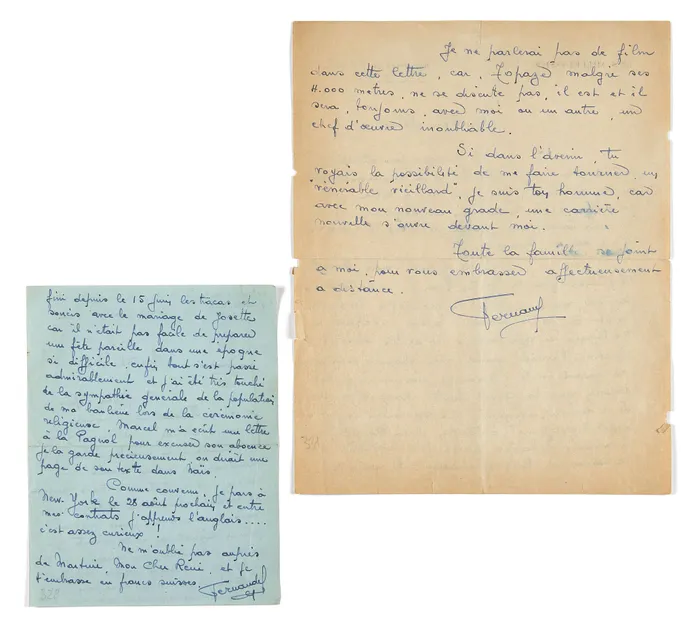 Je ne parlerai pas de film
dans cette lettre, car, Topaze malgré ses
4.000 mètres, ne se discute pas, il est et il
sera, toujours, avec moi ou un autre, un
chef d'œuvre inoubliable.
Si dans l'avenir, tu
voyais la possibilité de me faire tourner un
"vénérable vieillard", je suis ton homme, car
avec mon nouveau grade, une carrière
nouvelle s'ouvre devant moi.
Toute la famille se joint
à moi, pour vous embrasser affectueusement
à distance.
Fernand
fini depuis le 15 juin les tracas et
soucis avec le mariage de Josette
car il n'était pas facile de préparer
une fête pareille dans une époque
si difficile, enfin tout s'est passé
admirablement et j'ai été très touché
de la sympathie générale de la population
de ma banlieue lors de la cérémonie
religieuse, Marcel m'a écrit une lettre
à la Pagnol pour excuser son absence
je la garde précieusement, on dirait une
page de son texte dans Naïs.
Comme convenu, je pars à
New-York le 28 août prochain et entre
mes contrats j'apprends l'anglais.....
c'est assez curieux !
Ne m'oublie pas auprès
de Martine, Mon Cher René, et je
t'embrasse en francs suisses.
Fernandel